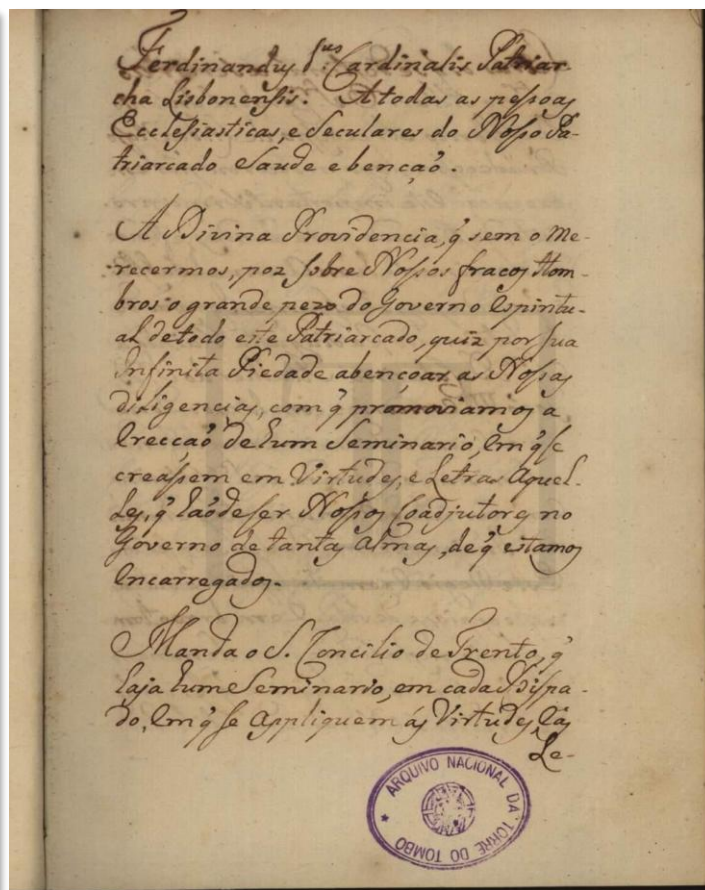 Ferdinandus S.us Cardinalis Patriar-
cha Lisbonensis. A todas as pessoas
Ecclesiasticas, e Seculares do Nosso Pa-
triarcado Saude e benção.
A Divina Providencia, q̃ sem o me-
recermos, poz sobre Nossos fracos Hom-
bros o grande pezo do Governo Espiritu-
al de todo este Patriarcado, quiz por sua
Infinita Piedade abençoar as Nossas
diligencias, com q̃ promoviamos a
Erecção de hum Seminario, em q̃ se
creassem em Virtudes, e Letras Aquel-
les, q̃ hão de ser Nossos Coadjutores no
Governo de tantas Almas, de q̃ estamos
Encarregados.
Manda o S. Concilio de Trento, q̃
haja hum Seminario, em cada Bispa-
do, em q̃ se Appliquem ás Virtudes, e ás
Le-
ARQUIVO NACIONAL DA TORRE DO TOMBO